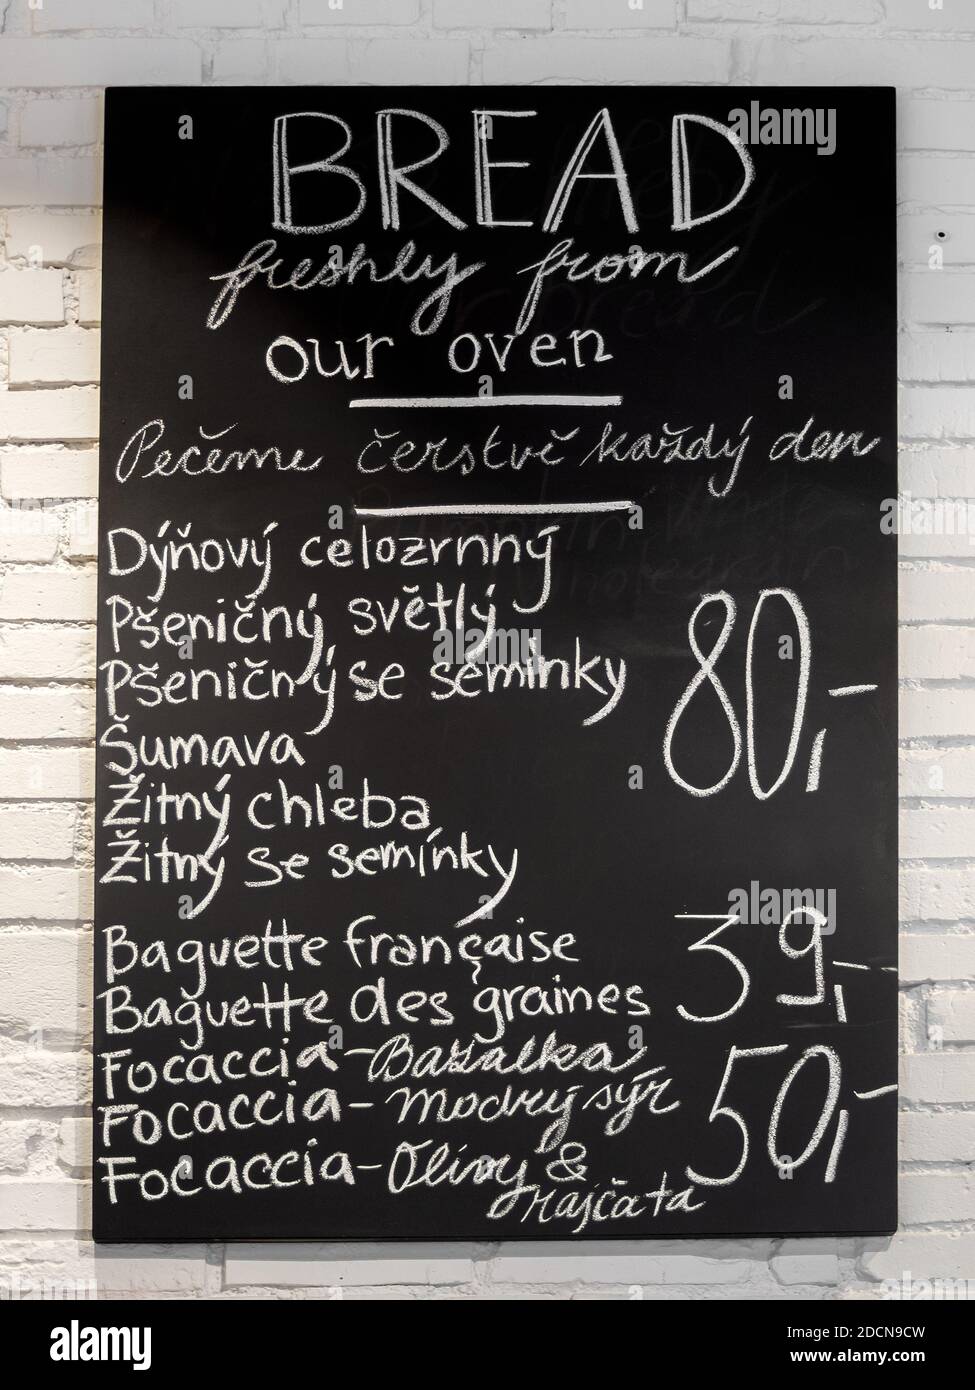 BREAD
freshly from
our oven
Pečeme čerstvě každý den
Dýňový celozrnný
Pšeničný světlý
Pšeničný se semínky
80,-
Šumava
Žitný chleba
Žitný se semínky
Baguette française
39,-
Baguette des graines
Focaccia - Bazalka
Focaccia - Modrý sýr
50,-
Focaccia - Olivy &
rajčata
alamy
Image ID: 2DCN9CW
www.alamy.com